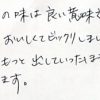 の味は良い意味で
おいしくてビックリしまし
もっと出していったほう
ます。